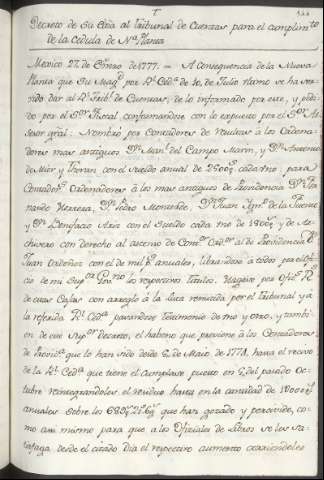 Decreto de Su Exâ al tribunal de Cuentas para el cumplim.to
de la Cedula de N.a Planta
Mexico 27 de Enero de 1777. = A consequencia de la Nueva
Planta que Su Mag.d por R.l Ced.a de 10 de Julio ultimo se ha ser-
vido dar al R.l Trib.l de Cuentas; de lo informado por este, y pedi-
do por el S.or Fiscal, conformandome con lo expuesto por el S.or A-
sesor gral: Nombro por Contadores de resultas à los Ordena-
dores mas antiguos D.n Man.l del Campo Marin, y D.n Antonio
de Mier y Teran con el sueldo anual de cada uno; para
Contador.s Ordenadores à los mas antiguos de Providencia D.n Fer-
nando Herrera, D.n Pedro Monterde, D.n Juan Ign.o de la Fuente
y D.n Bonifacio con el Sueldo cada uno de y de Ar-
chivero con derecho al ascenso de Cont.or al de Providencia D.n
Juan Ordoñes con el de mil p.s anuales, librandose à todos por el ofi-
cio de mi Sup.or Gov.no los respectivos titulos. Hagase por Ofic.s R.s
de estas Caxas con arreglo à la lista remitida por el tribunal y a
la referida R.l Ced.a pasandose testimonio de uno y otro, y tambi-
en de este Sup.or Decreto, el habono que previene à los Contadores
de Provid.a que lo han sido desde 6 de Maio de hasta el recivo
de la R.l Ced.a que tiene el Cumplase puesto en de pasado Oc-
tubre reintegrandoles el residuo hasta en la cantidad de
anuales sobre los que han gozado y percivido, co-
mo asi mismo para que a los Oficiales de Libros se les sa-
tisfaga desde el citado dia el respectivo aumento corriendoles